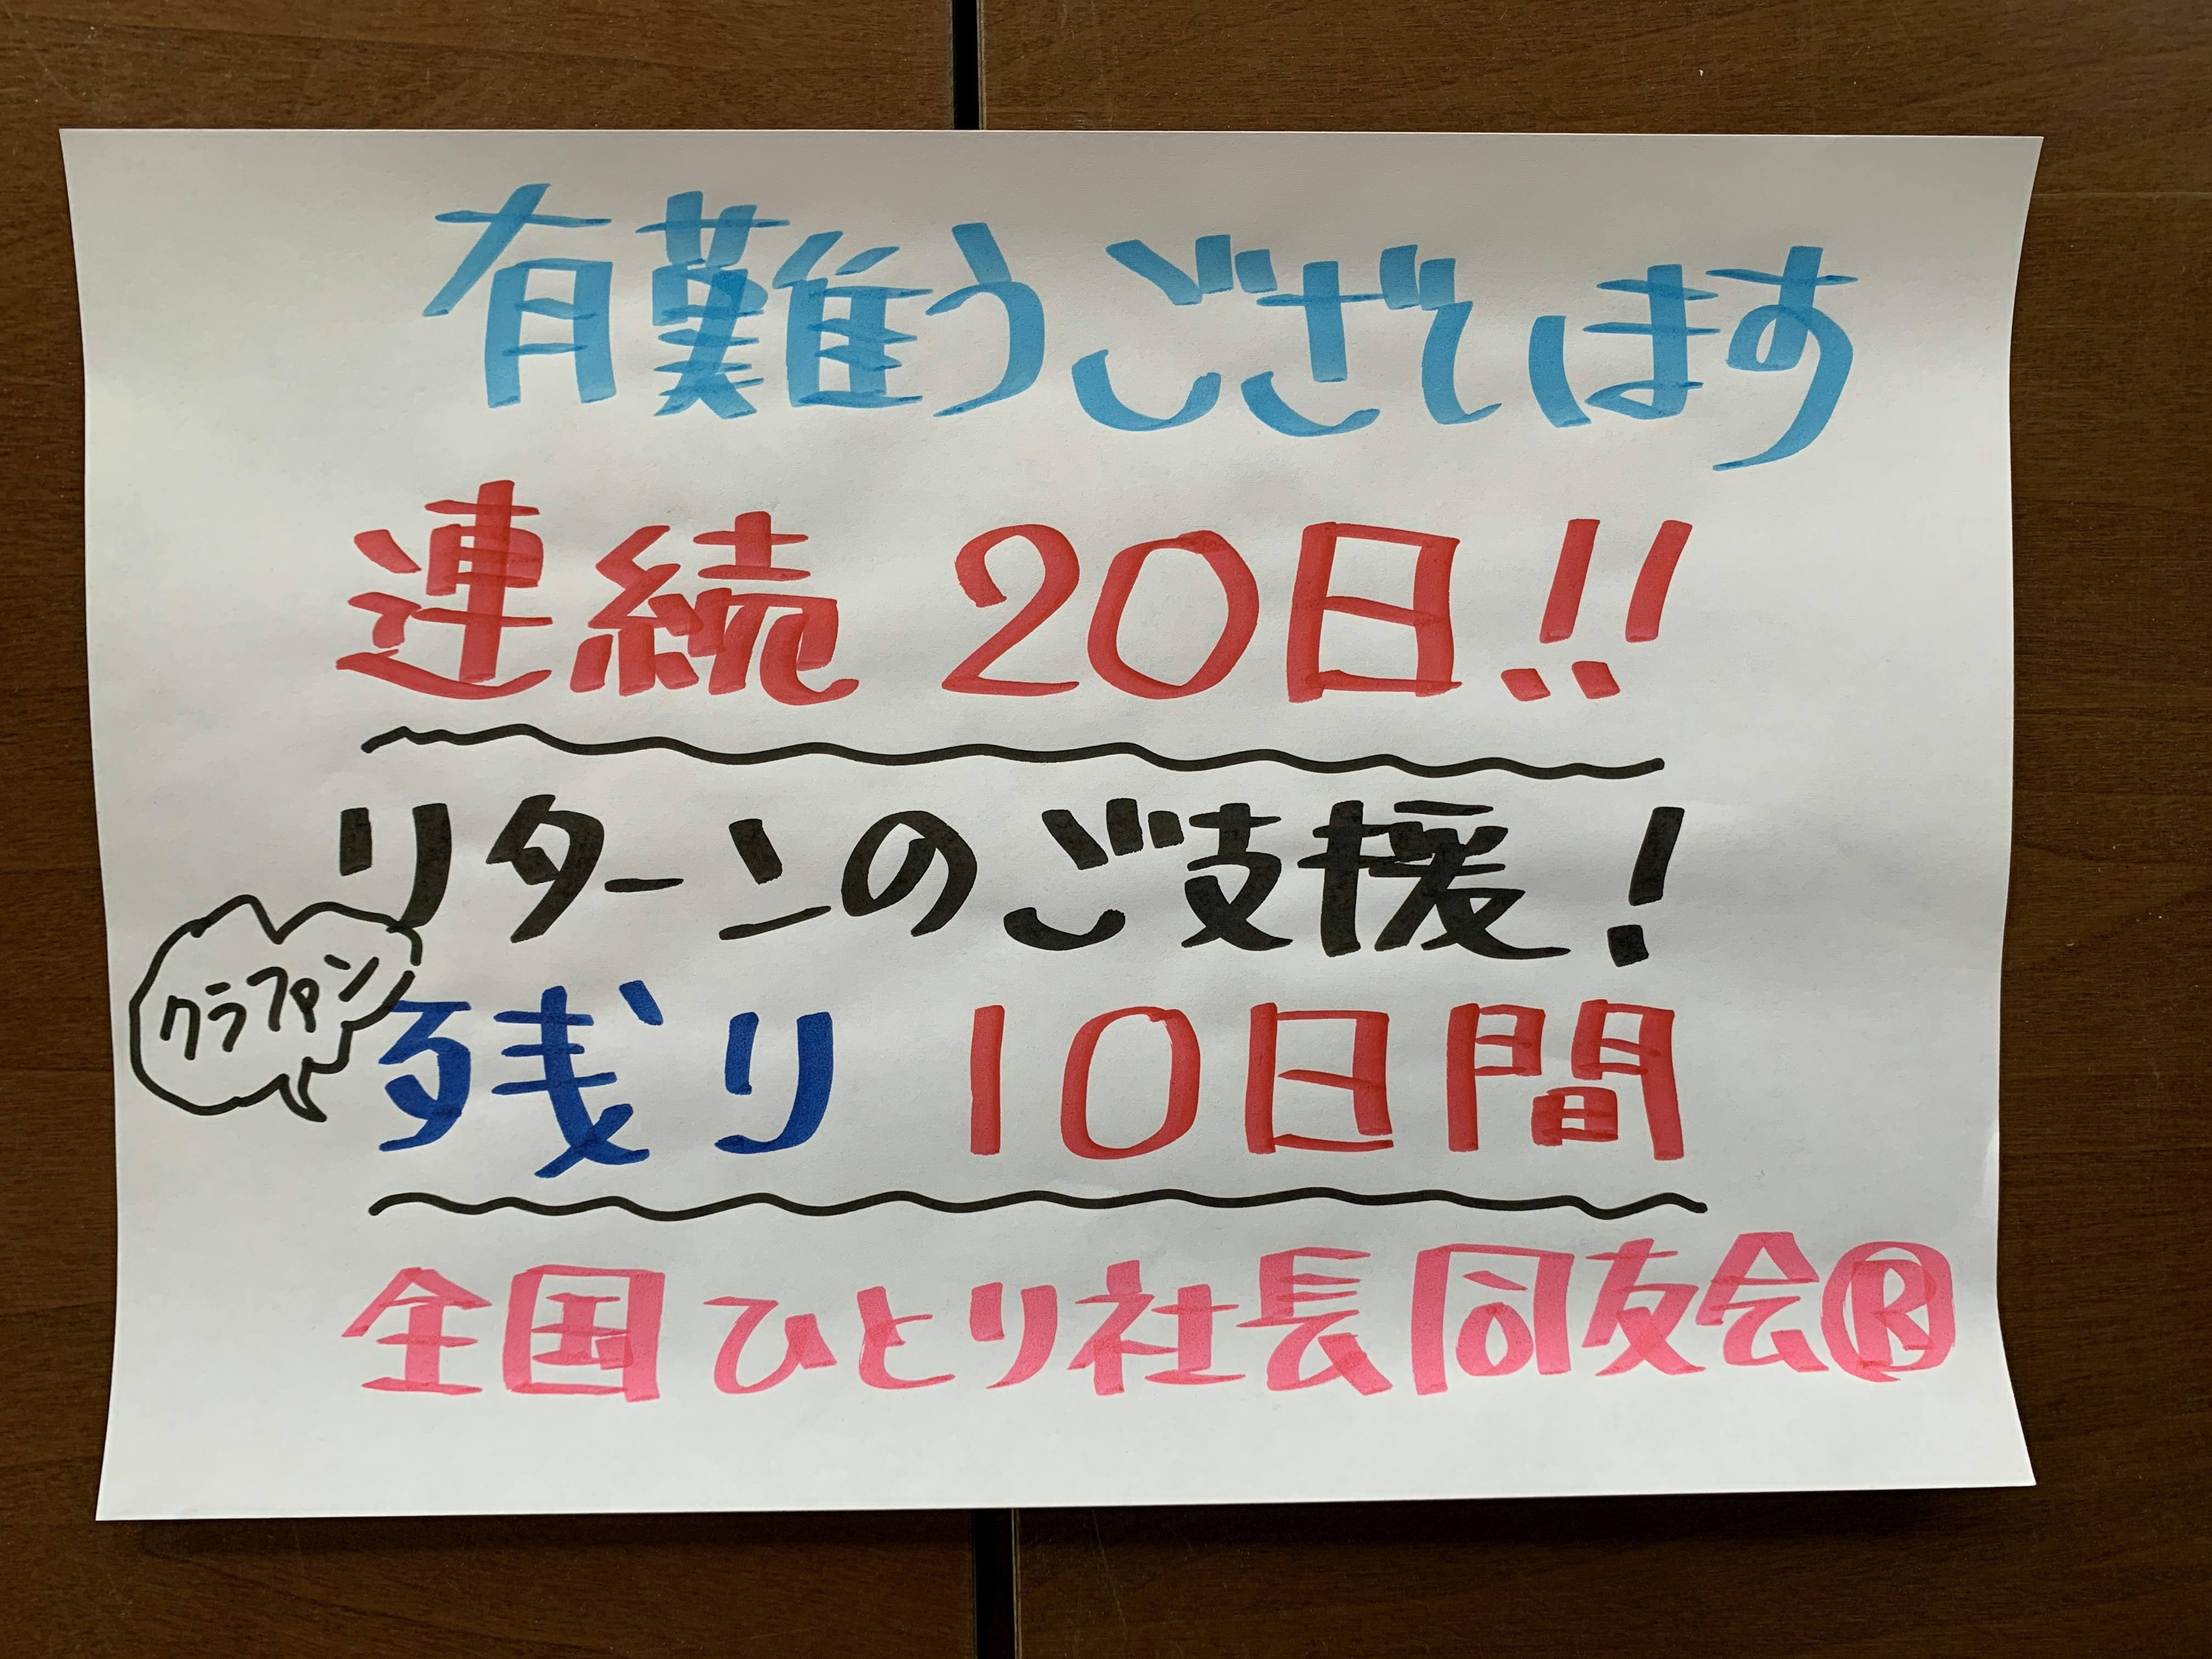 有難うございます
連続 20日!!
リターンのご支援!
クラファン
残り 10日間
全国ひとり社長同友会®